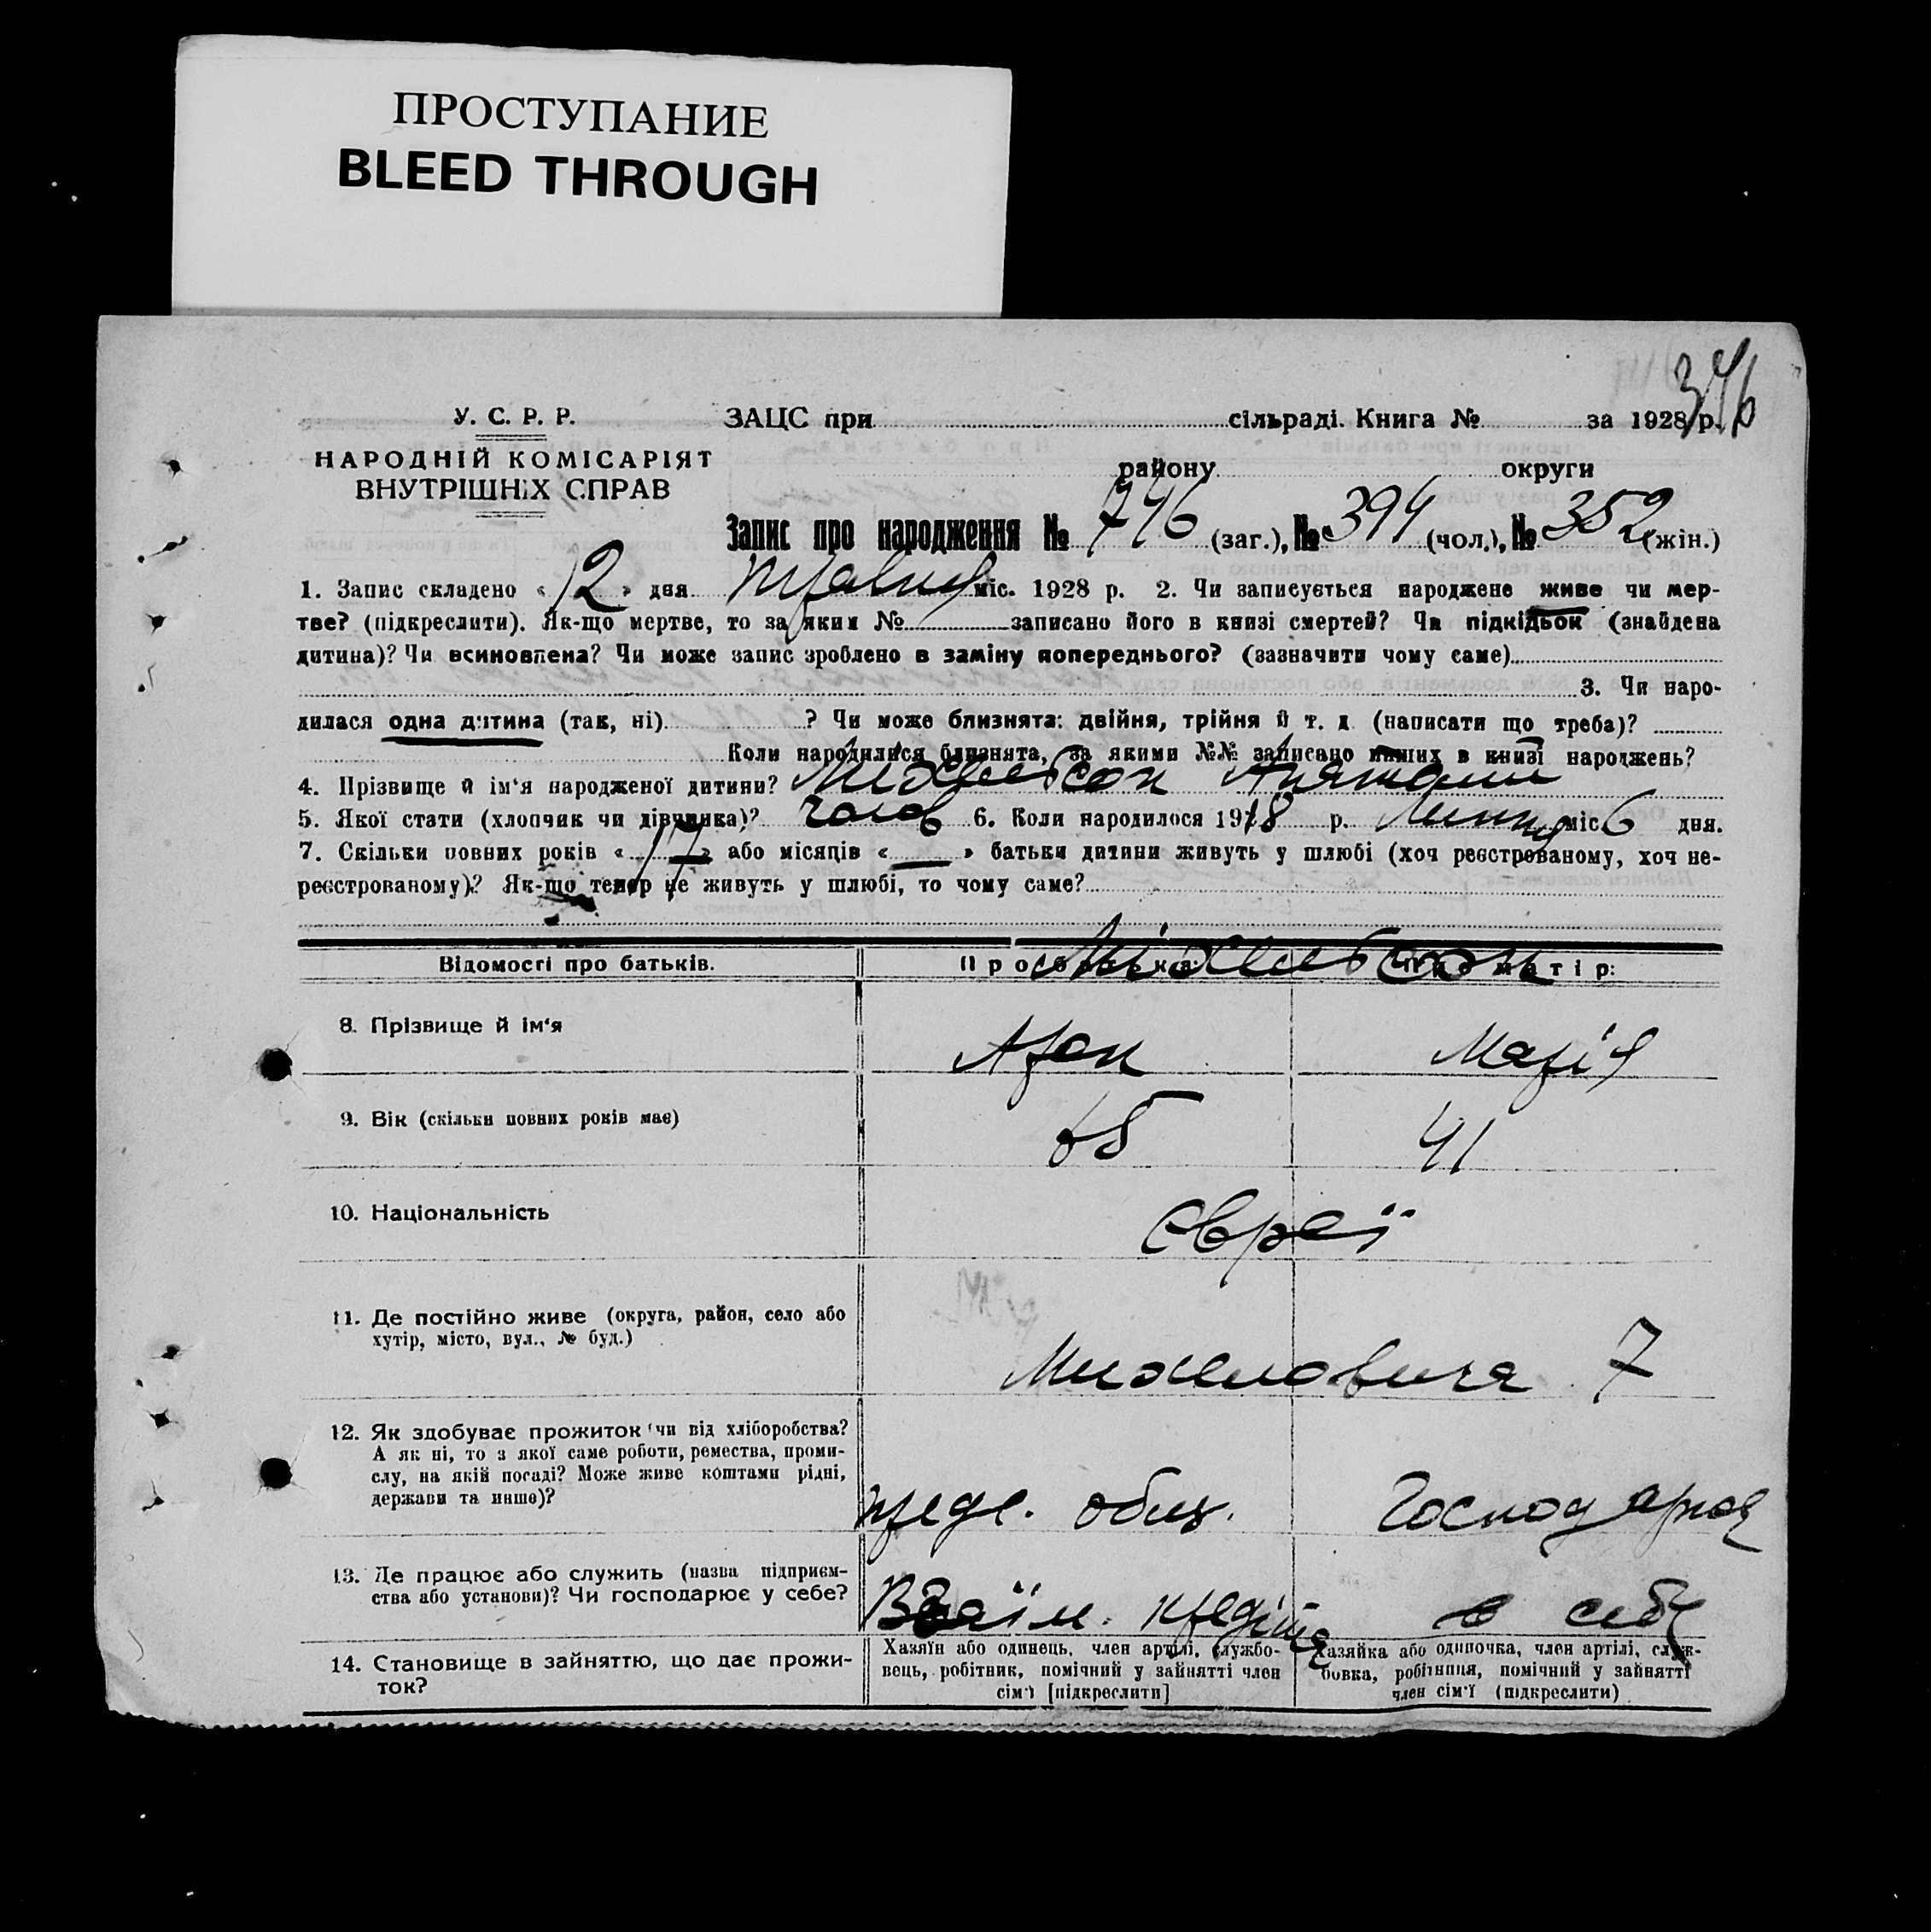 ПРОСТУПАНИЕ
BLEED THROUGH
346
У. С. Р. Р.
ЗАЦС при сільраді. Книга № за 1928 р.
НАРОДНІЙ КОМІСАРІЯТ
ВНУТРІШНІХ СПРАВ
району округи
Запис про народження № 746 (заг.), № 394 (чол.), № 352 (жін.)
1. Запис складено « 12 » дня травня міс. 1928 р. 2. Чи записується народжене живе чи мер-
тве? (підкреслити). Як-що мертве, то за яким № записано його в книзі смертей? Чи підкідьок (знайдена
дитина)? Чи всиновлена? Чи може запис зроблено в заміну попереднього? (зазначити чому саме)
3. Чи наро-
дилася одна дитина (так, ні) ? Чи може близнята: двійня, трійня й т. д. (написати що треба)?
Коли народилися близнята, за якими №№ записано инших в книзі народжень?
4. Прізвище й ім'я народженої дитини? Михельсон
5. Якої стати (хлопчик чи дівчинка)? чолов 6. Коли народилося 1918 р. міс. 6 дня.
7. Скільки повних років « 17 » або місяців « — » батьки дитини живуть у шлюбі (хоч реєстрованому, хоч не-
реєстрованому)? Як-що тепер не живуть у шлюбі, то чому саме?
Міхельсон
Відомості про батьків. Про батька: Про матір:
8. Прізвище й ім'я Арон Марія
9. Вік (скільки повних років має) 65 41
10. Національність Євреї
11. Де постійно живе (округа, район, село або
хутір, місто, вул., № буд.)
7
12. Як здобуває прожиток (чи від хліборобства?
А як ні, то з якої саме роботи, ремества, проми-
слу, на якій посаді? Може живе коштами рідні,
держави та инше)?
предс. общ. Господарює
13. Де працює або служить (назва підприєм-
ства або установи)? Чи господарює у себе?
Взаїм. кредіта в себе
14. Становище в зайняттю, що дає прожи-
ток?
Хазяїн або одинець, член артілі, службо-
вець, робітник, помічний у зайнятті член
сім'ї [підкреслити]
Хазяйка або одиночка, член артілі, служ-
бовка, робітниця, помічний у зайнятті
член сім'ї (підкреслити)